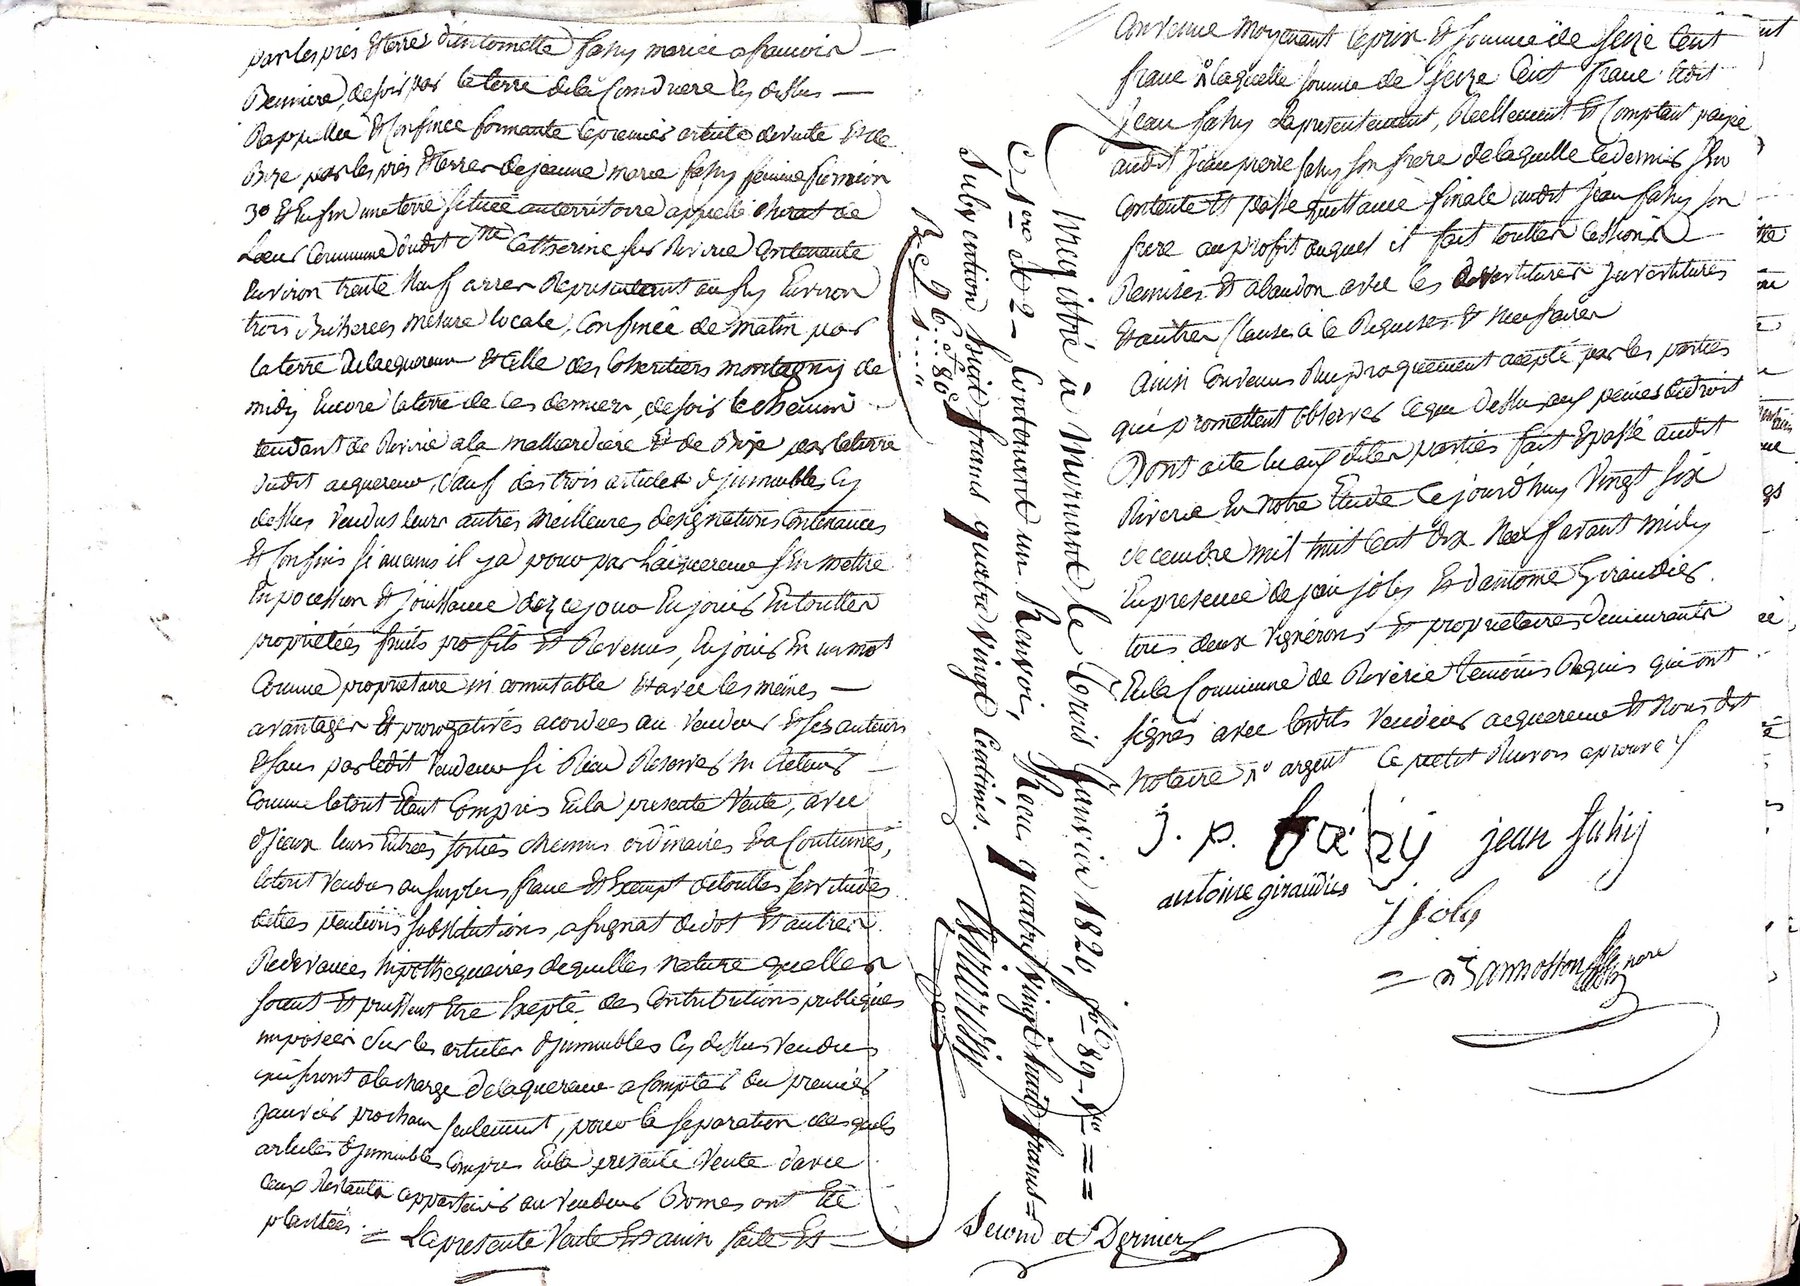 par les prés et terres d'antoinette fahy mariée a françois
de soir par la terre de la ly dessus
Rappellée et Confinée formante le premier article de vente et de
Bize par les prés et terres de jeanne marie fahy femme
3o et Enfin une terre située au territoire appellé de
Commune dudit Ste Catherine sur Riverie Contenante
Environ trente Neuf arres Representant au fly Environ
trois Bicherees mesure locale, Confinée de matin par
la terre de lacquereur et celle des Cohéritiers montagny de
midy Encore la terre de ces derniers, de soir le chemin
tendant de Riverie a la malliardiere et de Bize par la terre
dudit acquereur, Sauf des trois articles d'jmmeubles Cy
dessus Vendus leurs autres meilleures designations Contenances
et Confins si aucuns il y a pour par Lacquereur s'En mettre
En pocession et jouissance dez ce jour En jouir En touttes
proprietées fruits profits et Revenus, En jouir En un mot
Comme propriétaire in comutable et avec les mêmes
avantages et prerogatives acordées au Vendeur et ses auteurs
et sans par ledit Vendeur si Rien Reserver ni Retenir
Comme le tout Etant Compris En la presente Vente, avec
d'jceux leurs Entrées sorties chemins ordinaires et a Coutumés,
le tout Vendus au surplus franc et Exempt de touttes servitudes
dettes pentions substitutions, assignat de dot et autres
Redevances hipothequaires de quelles nature quelles
soient et puissent Etre Exepté des Contributions publiques
imposées sur les articles d'jmmeubles Cy dessus Vendus
qui seront a la charge de laquereur a Compter du premier
janvier prochain seulement, pour la separation desquels
articles d'jmmeubles Compris En la presente Vente d'avec
Ceux Restants appartenir au Vendeur Bornes ont Eté
plantées. = La presente Vente Est ainsi faite Et
Convenue moyenant le prix et somme de seize Cent
franc laquelle somme de seize Cent franc ledit
Jean fahy a presentement, Reellement et Comptant payée
audit Jean pierre fahy son frere de laquelle ce dernier s'En
Contente et passe quittance finale audit Jean fahy son
frere au profit duquel il fait touttes Cessions
Remises et abandon avec les devestitures jnvestitures
et autres Clauses a ce Requises et Necessaires
Ainsi Convenus Reciproquement acepté par les parties
qui promettent observer ce que Dessus aux peines de droit
Dont acte lu aux dites parties fait et passé audit
Riverie En notre Etude Ce jourd'huy Vingt six
decembre mil huit Cent dix Neuf avant midy
En presence de jean joly et d'antoine Giraudier
tous deux vignerons et proprietaires demeurants
En la Commune de Riverie temoins Requis qui ont
signés avec lesdits Vendeur acquereur et Nous dit
Notaire argent Ce petit Renvois aprouvé
j. p. fahy jean fahy
antoine giraudier
j joly
Jannosson nore
Enregistré à Mornant le trois Janvier 1820, fol 89 Vo
Cses 1ere et 2 Contenant un Renvoi, Recu quatre Vingt huit francs
Subvention huit francs quatre Vingt Centimes.
Rec 96f 80c
Second et Dernier